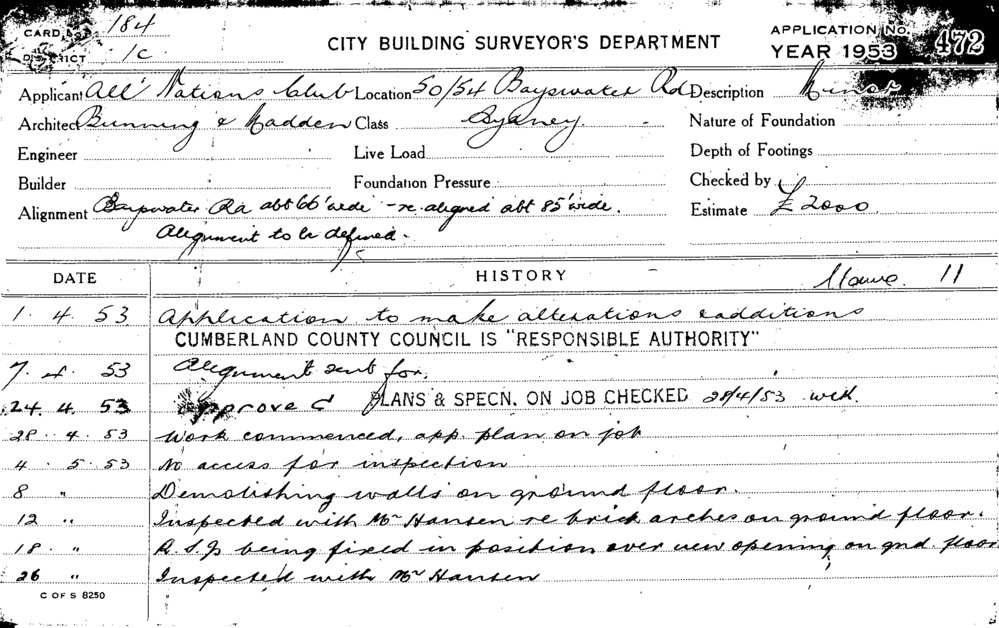 CARD No. 184
DISTRICT 1C
CITY BUILDING SURVEYOR'S DEPARTMENT
APPLICATION No. 472
YEAR 1953
Applicant All Nations Club Location 50/54 Bayswater Rd Description Minor
Architect Bunning & Madden Class Sydney Nature of Foundation
Engineer Live Load Depth of Footings
Builder Foundation Pressure Checked by
Alignment Bayswater Rd abt 66' wide - re-aligned abt 85' wide. Estimate £2000
Alignment to be defined.
DATE HISTORY 11
1. 4. 53 Application to make alterations & additions
CUMBERLAND COUNTY COUNCIL IS "RESPONSIBLE AUTHORITY"
7. 4. 53 Alignment sent for.
24. 4. 53 Approved PLANS & SPECN. ON JOB CHECKED 28/4/53
28. 4. 53 Work commenced, app. plan on job
4. 5. 53 No access for inspection
8 " Demolishing walls on ground floor.
12 " Inspected with Mr Hansen re brick arches on ground floor.
18. " R.S.Js being fixed in position over new opening on gnd. floor
26 " Inspected with Mr Hansen
C OF S 8250